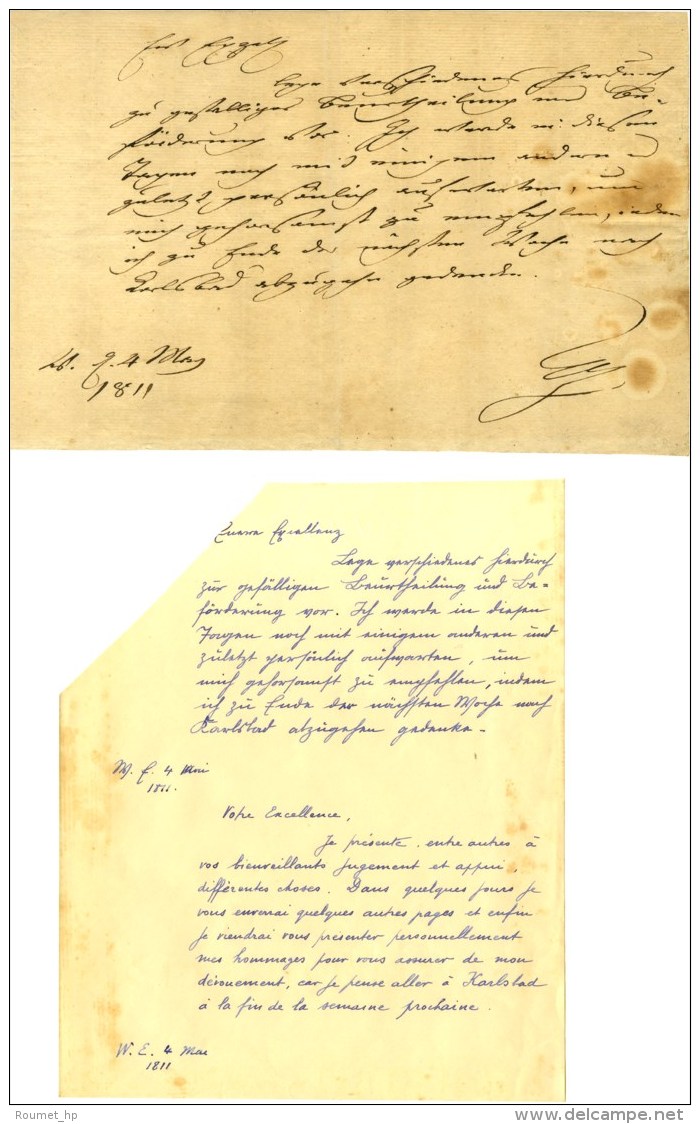 Ew Exzell
lege verschiedenes hierdurch
zu gefälliger Beurtheilung und Be=
förderung vor. Ich werde in diesen
Tagen noch mit einigem andern u
zuletzt persönlich aufwarten, um
mich gehorsamst zu empfehlen, indem
ich zu Ende der nächsten Woche nach
Karlsbad abzugehn gedencke.
W. d. 4 May
1811
G
Euere Excellenz
Lege verschiedenes hierdurch
zur gefälligen Beurtheilung und Be=
förderung vor. Ich werde in diesen
Tagen noch mit einigem anderen und
zuletzt persönlich aufwarten, um
mich gehorsamst zu empfehlen, indem
ich zu Ende der nächsten Woche nach
Karlsbad abzugehen gedenke.
W. E. 4 Mai
1811.
Votre Excellence,
Je présente, entre autres à
vos bienveillants jugement et appui,
différentes choses. Dans quelques jours je
vous enverrai quelques autres pages et enfin
je viendrai vous présenter personnellement
mes hommages pour vous assurer de mon
dévouement, car je pense aller à Karlsbad
à la fin de la semaine prochaine.
W. E. 4 Mai
1811
Roumet_hp
delcampe.net